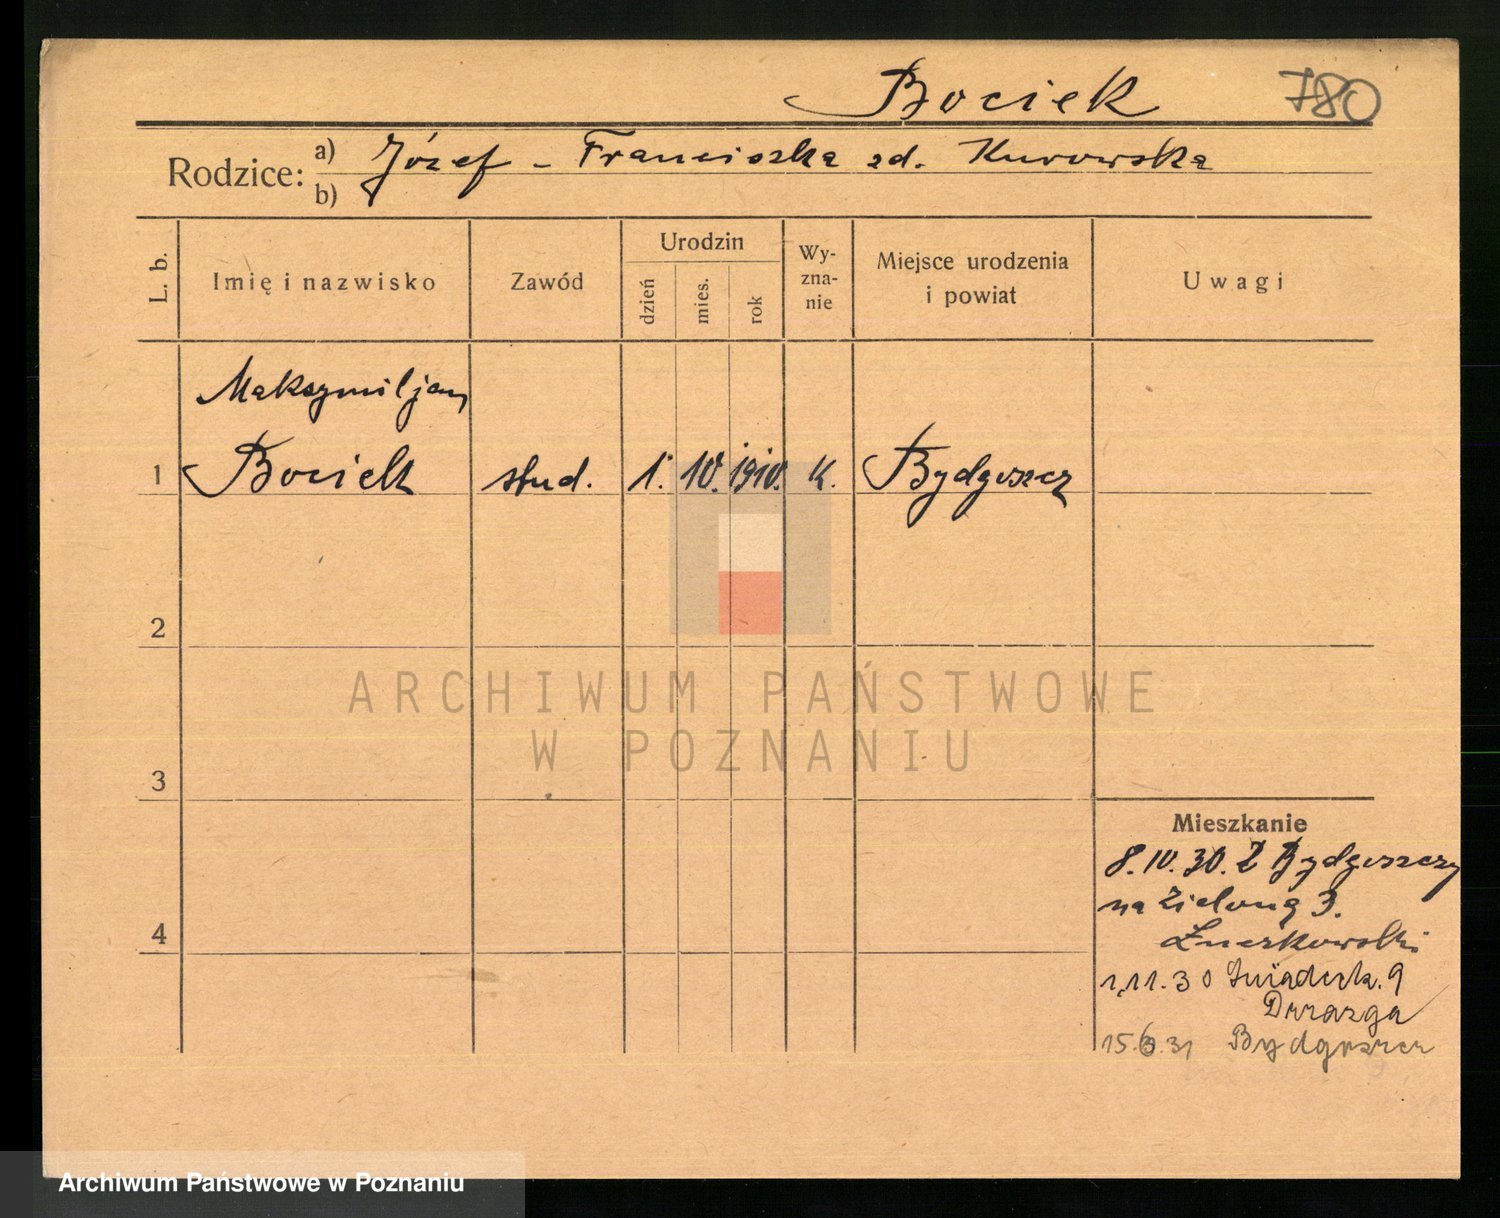 Bociek 780
Rodzice: a) Józef - Franciszka zd. Kurowska
b)
L. b.
Imię i nazwisko
Zawód
Urodzin
dzień
mies.
rok
Wy-
zna-
nie
Miejsce urodzenia
i powiat
Uwagi
Maksymiljan
1 Bociek stud. 1. 10. 1910. K. Bydgoszcz
2
3
4
Mieszkanie
8.10.30. Z Bydgoszczy
na Zieloną 3.
1.11.30 9
Drzazga
15.6.31 Bydgoszcz
ARCHIWUM PAŃSTWOWE
W POZNANIU
Archiwum Państwowe w Poznaniu